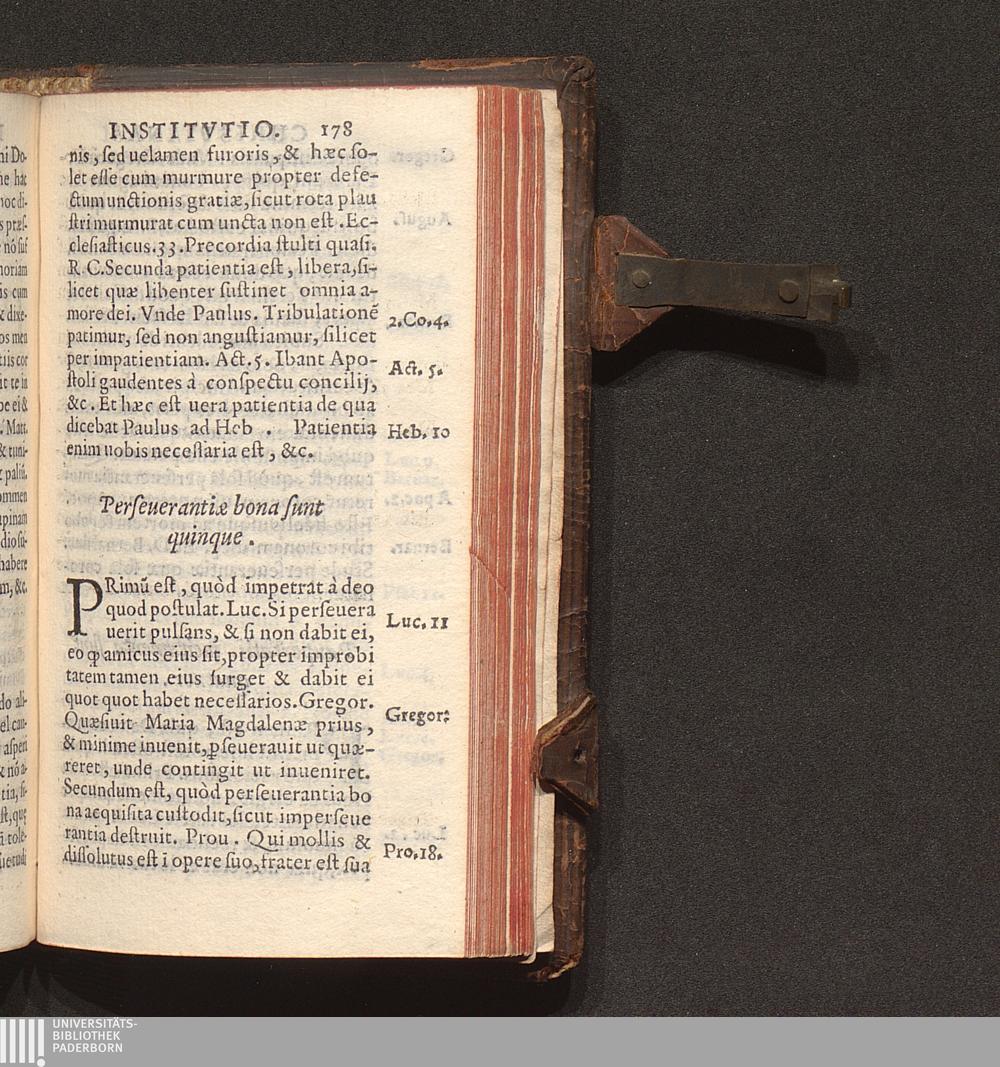 INSTITVTIO. 178
nis, ſed uelamen furoris, & hæc ſo-
let eſſe cum murmure propter defe-
ctum unctionis gratiæ, ſicut rota plau
ſtri murmurat cum uncta non eſt. Ec-
cleſiaſticus.33. Precordia ſtulti quaſi.
R. C. Secunda patientia eſt, libera, ſi-
licet quæ libenter ſuſtinet omnia a-
more dei. Vnde Paulus. Tribulationẽ
2.Co.4.
patimur, ſed non anguſtiamur, ſilicet
per impatientiam. Act. 5. Ibant Apo-
Act. 5.
ſtoli gaudentes à conſpectu concilij,
&c. Et hæc eſt uera patientia de qua
dicebat Paulus ad Heb . Patientia
Heb. 10
enim uobis neceſſaria eſt, &c.
Perſeuerantiæ bona ſunt
quinque.
PRimũ eſt, quòd impetrat à deo
quod poſtulat. Luc. Si perſeuera
Luc. 11
uerit pulſans, & ſi non dabit ei,
eo ꝙ amicus eius ſit, propter improbi
tatem tamen eius ſurget & dabit ei
quot quot habet neceſſarios. Gregor.
Gregor:
Quæſiuit Maria Magdalenæ prius,
& minime inuenit, ꝑſeuerauit ut quæ-
reret, unde contingit ut inueniret.
Secundum eſt, quòd perſeuerantia bo
na acquiſita cuſtodit, ſicut imperſeue
rantia deſtruit. Prou. Qui mollis &
Pro.18.
diſſolutus eſt ĩ opere ſuo, frater eſt ſua
UNIVERSITÄTS-
BIBLIOTHEK
PADERBORN